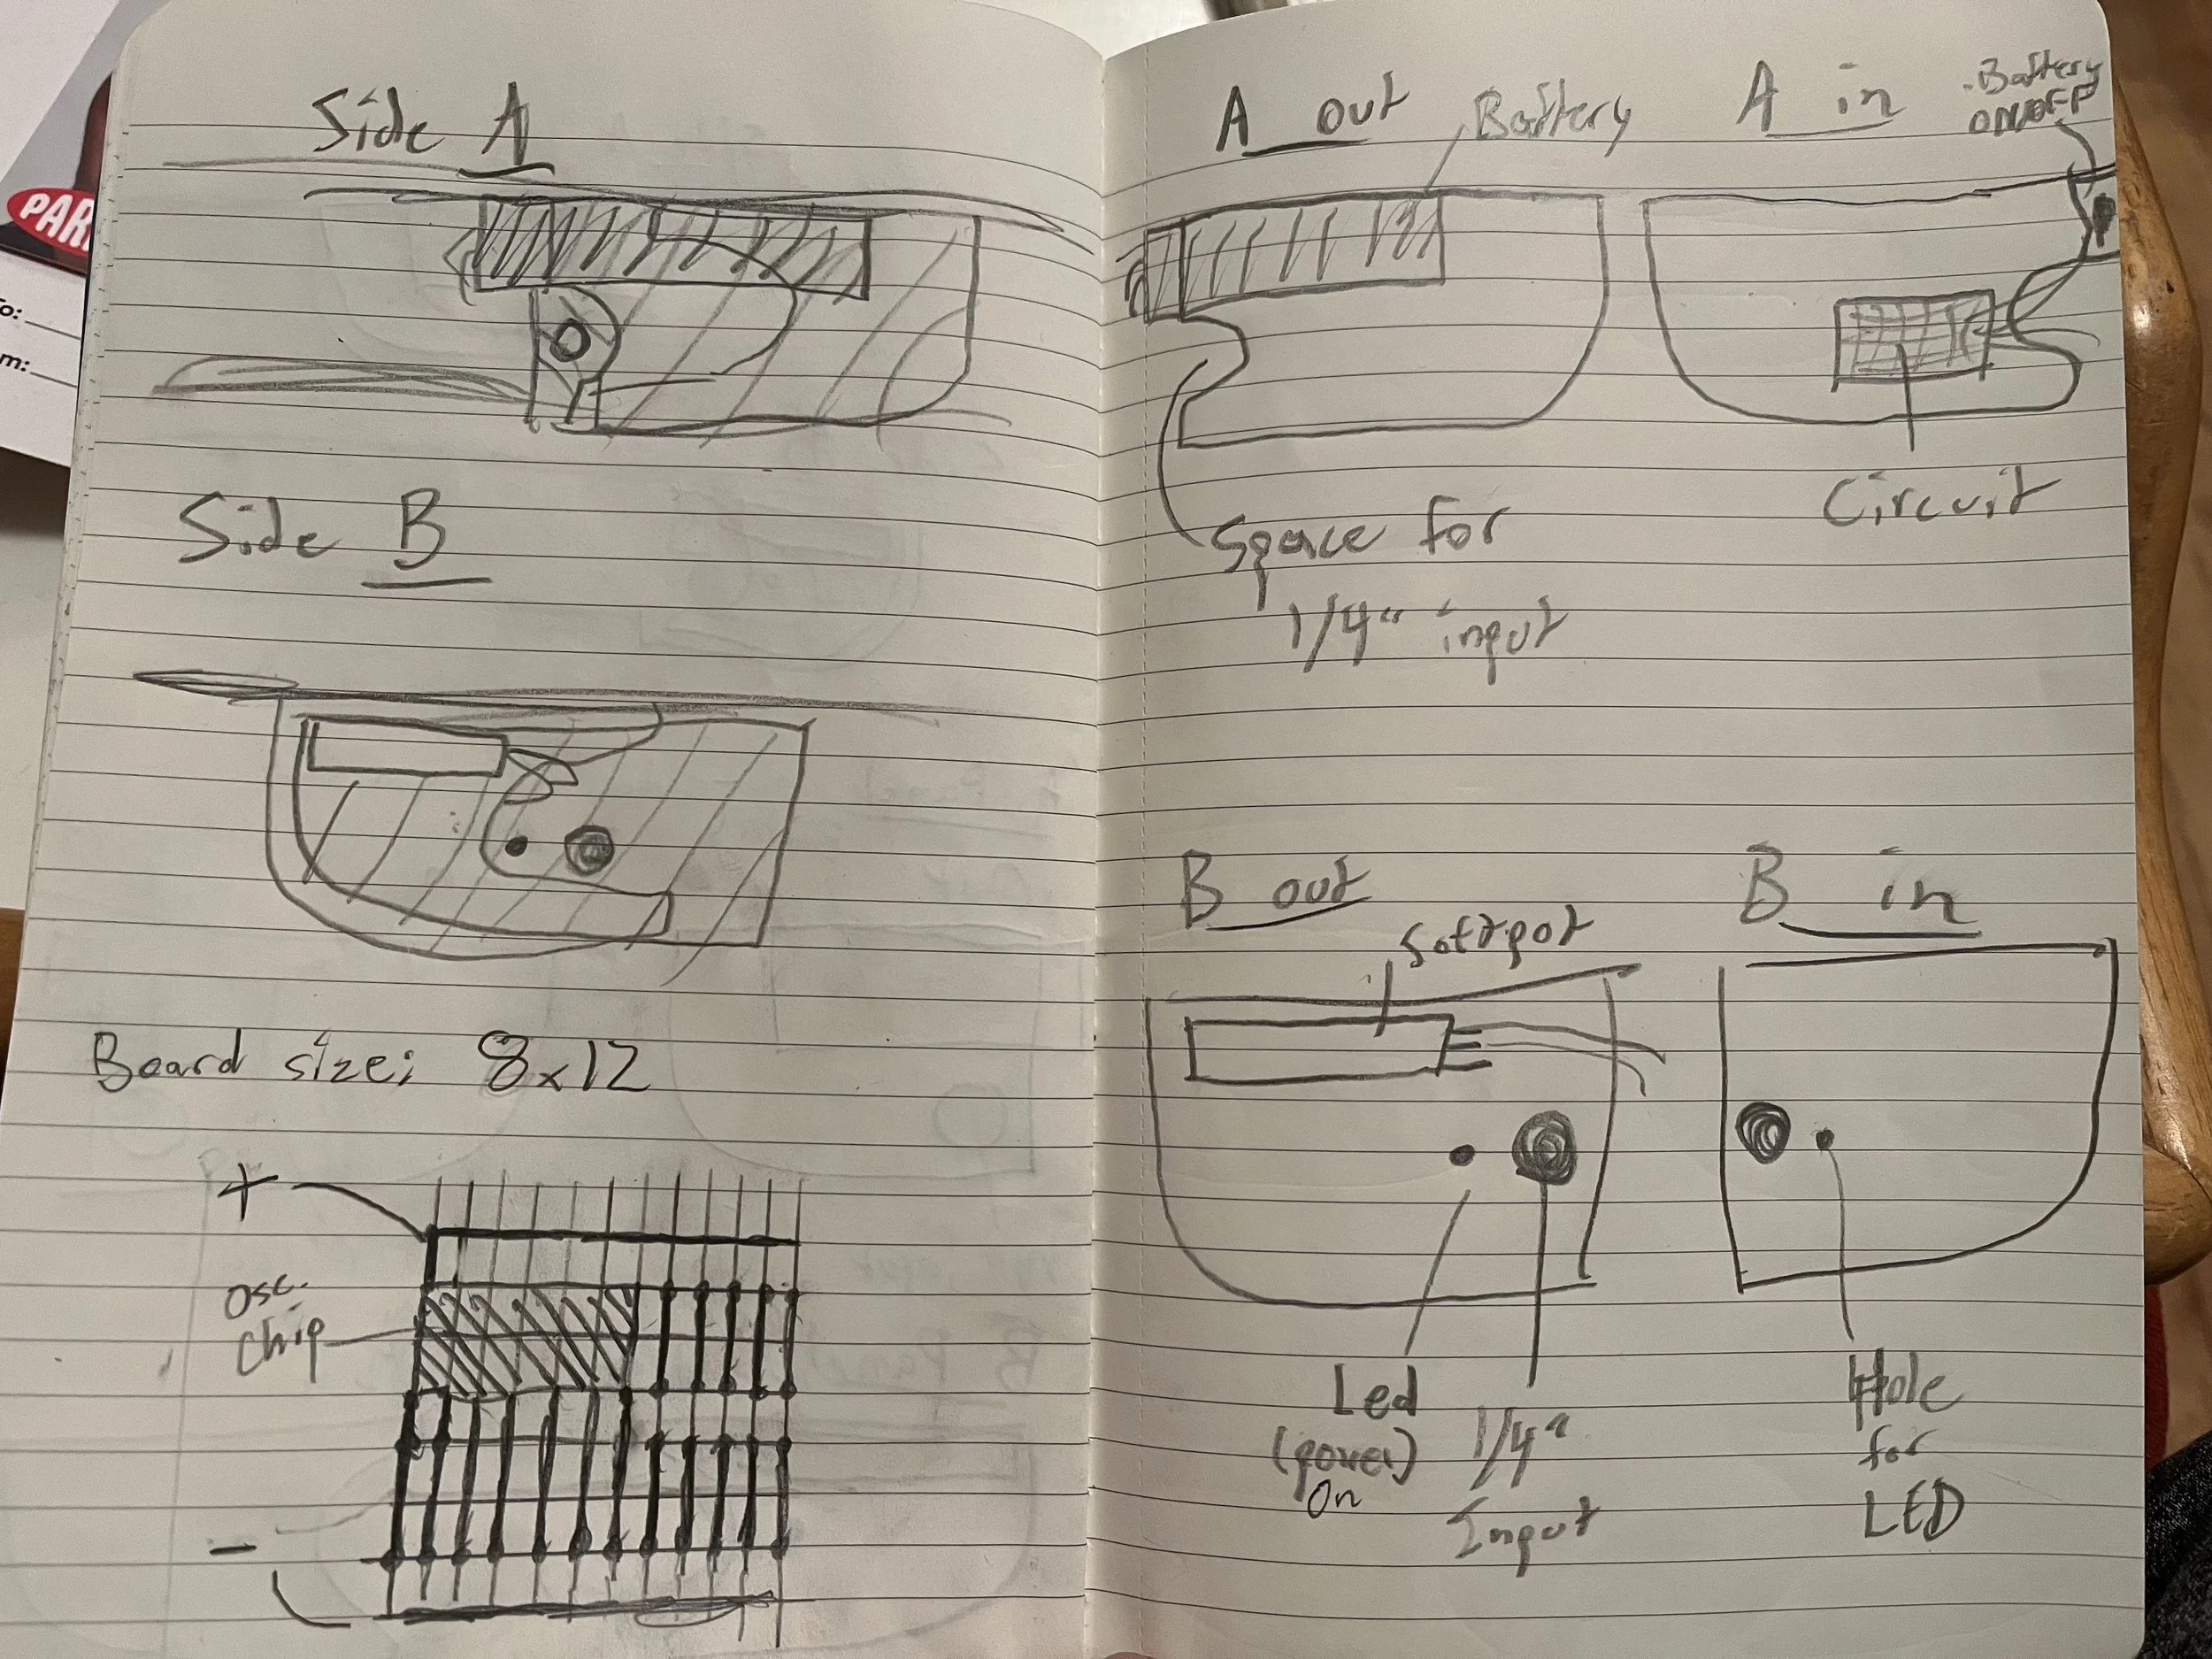 PAR
o:
m:
Side A
Side B
Board size: 8x12
+
Osc.
Chip
-
A out
Battery
A in
Battery
ON/OFF
Space for
1/4" input
Circuit
B out
Softpot
B in
Led
(power)
On
1/4"
Input
Hole
for
LED